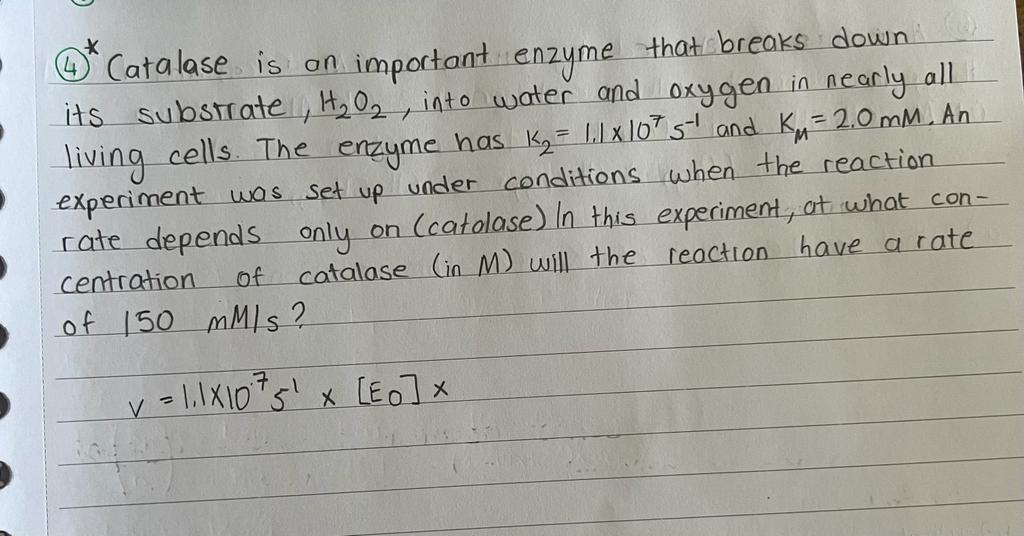 ④* Catalase is an important enzyme that breaks down
its substrate, H₂O₂, into water and oxygen in nearly all
living cells. The enzyme has K₂ = 1.1x10⁷ s⁻¹ and K_M = 2.0 mM. An
experiment was set up under conditions when the reaction
rate depends only on (catalase) In this experiment, at what con-
centration of catalase (in M) will the reaction have a rate
of 150 mM/s?
v = 1.1x10⁻⁷ s⁻¹ x [E₀] x